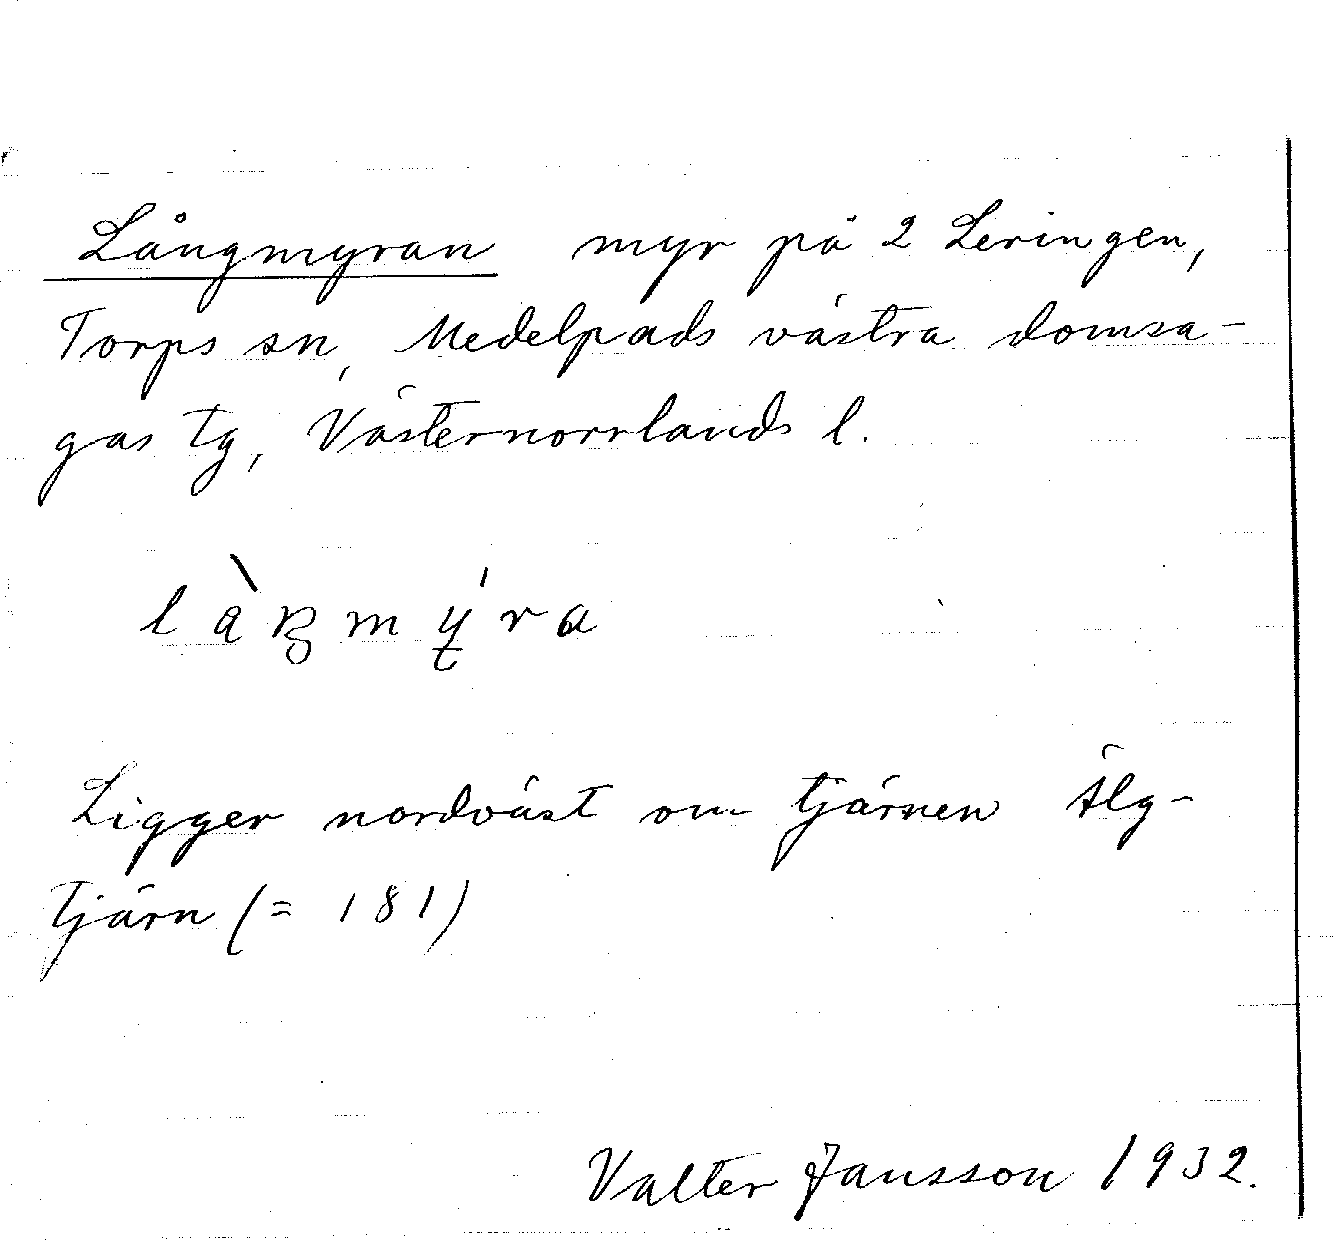 Långmyran myr på 2 Leringen,
Torps sn, Medelpads västra domsa-
gas tg, Västernorrlands l.
Ligger nordväst om tjärnen Älg-
tjärn (= 181)
Valter Jansson 1932.